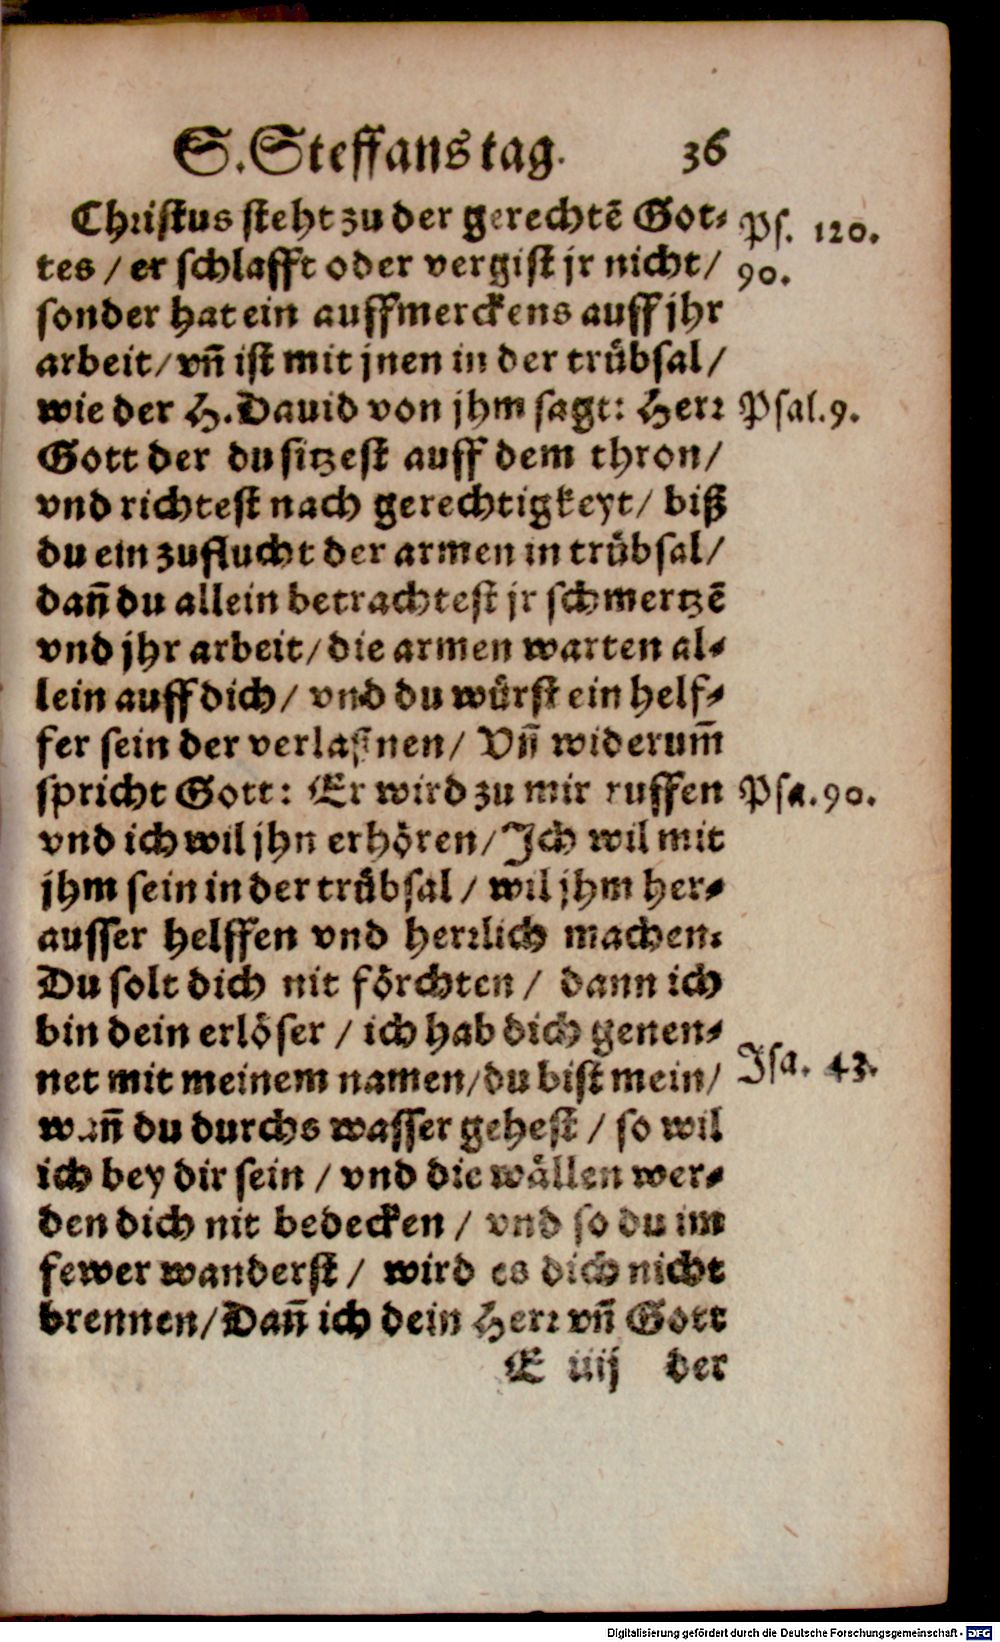 S. Steffans tag. 36
Christus steht zu der gerechtē Got-
tes / er schlafft oder vergist jr nicht /
sonder hat ein auffmerckens auff jhr
arbeit / vn̄ ist mit jnen in der trübsal /
wie der H. Dauid von jhm sagt: Herr
Gott der du sitzest auff dem thron /
vnd richtest nach gerechtigkeyt / biß
du ein zuflucht der armen in trübsal /
dan̄ du allein betrachtest jr schmertzē
vnd jhr arbeit / die armen warten al-
lein auff dich / vnd du würst ein helf-
fer sein der verlaßnen / Vn̄ widerum̄
spricht Gott: Er wird zu mir ruffen
vnd ich wil jhn erhören / Ich wil mit
jhm sein in der trübsal / wil jhm her-
ausser helffen vnd herrlich machen:
Du solt dich nit förchten / dann ich
bin dein erlöser / ich hab dich genen-
net mit meinem namen / du bist mein /
wan̄ du durchs wasser gehest / so wil
ich bey dir sein / vnd die wällen wer-
den dich nit bedecken / vnd so du im
fewer wanderst / wird es dich nicht
brennen / Dan̄ ich dein Herr vn̄ Gott
E iiij der
Ps. 120.
90.
Psal. 9.
Psa. 90.
Isa. 43.
Digitalisierung gefördert durch die Deutsche Forschungsgemeinschaft - DFG